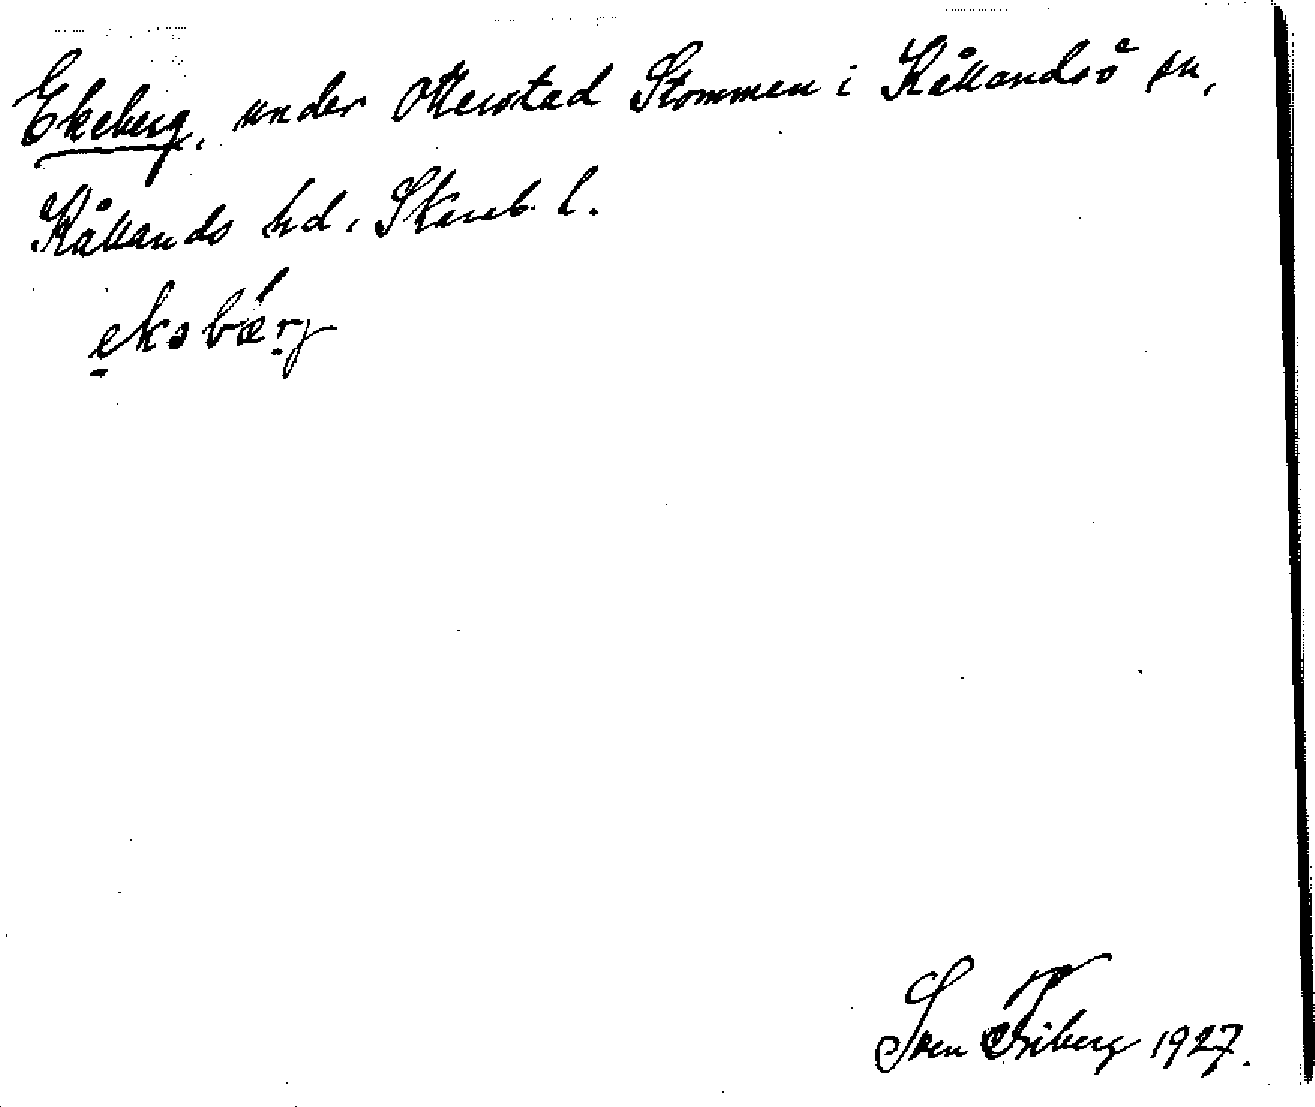 Ekeberg, under Otterstad Stommen i Kållandsö sn,
Kållands hd, Skarab. l.
ekabærj
Sven Friberg 1927.